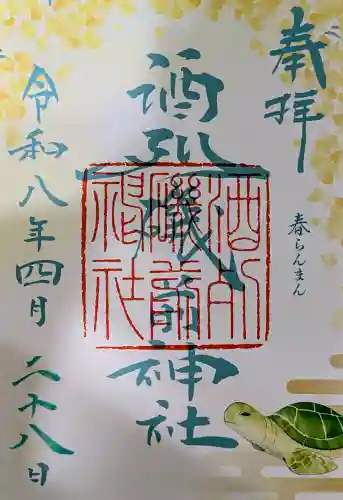 奉拝
春らんまん
酒列磯前神社
酒列磯前神社
令和八年四月二十八日